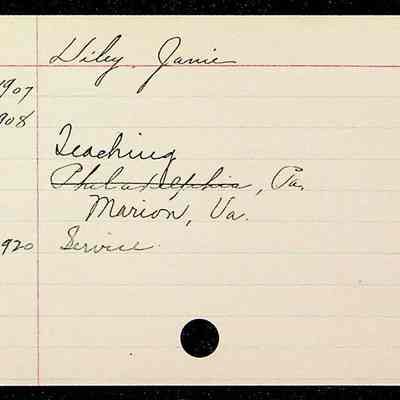 Wiley, Janie
1907
1908
Teaching
Philadelphia, Pa.
Marion, Va.
1920 Service